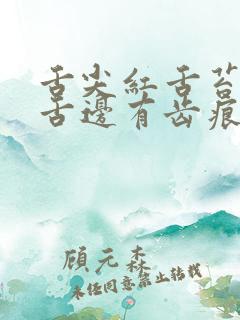 舌尖红舌苔
舌邊有齿痕
顾元森
未经同意禁止转载